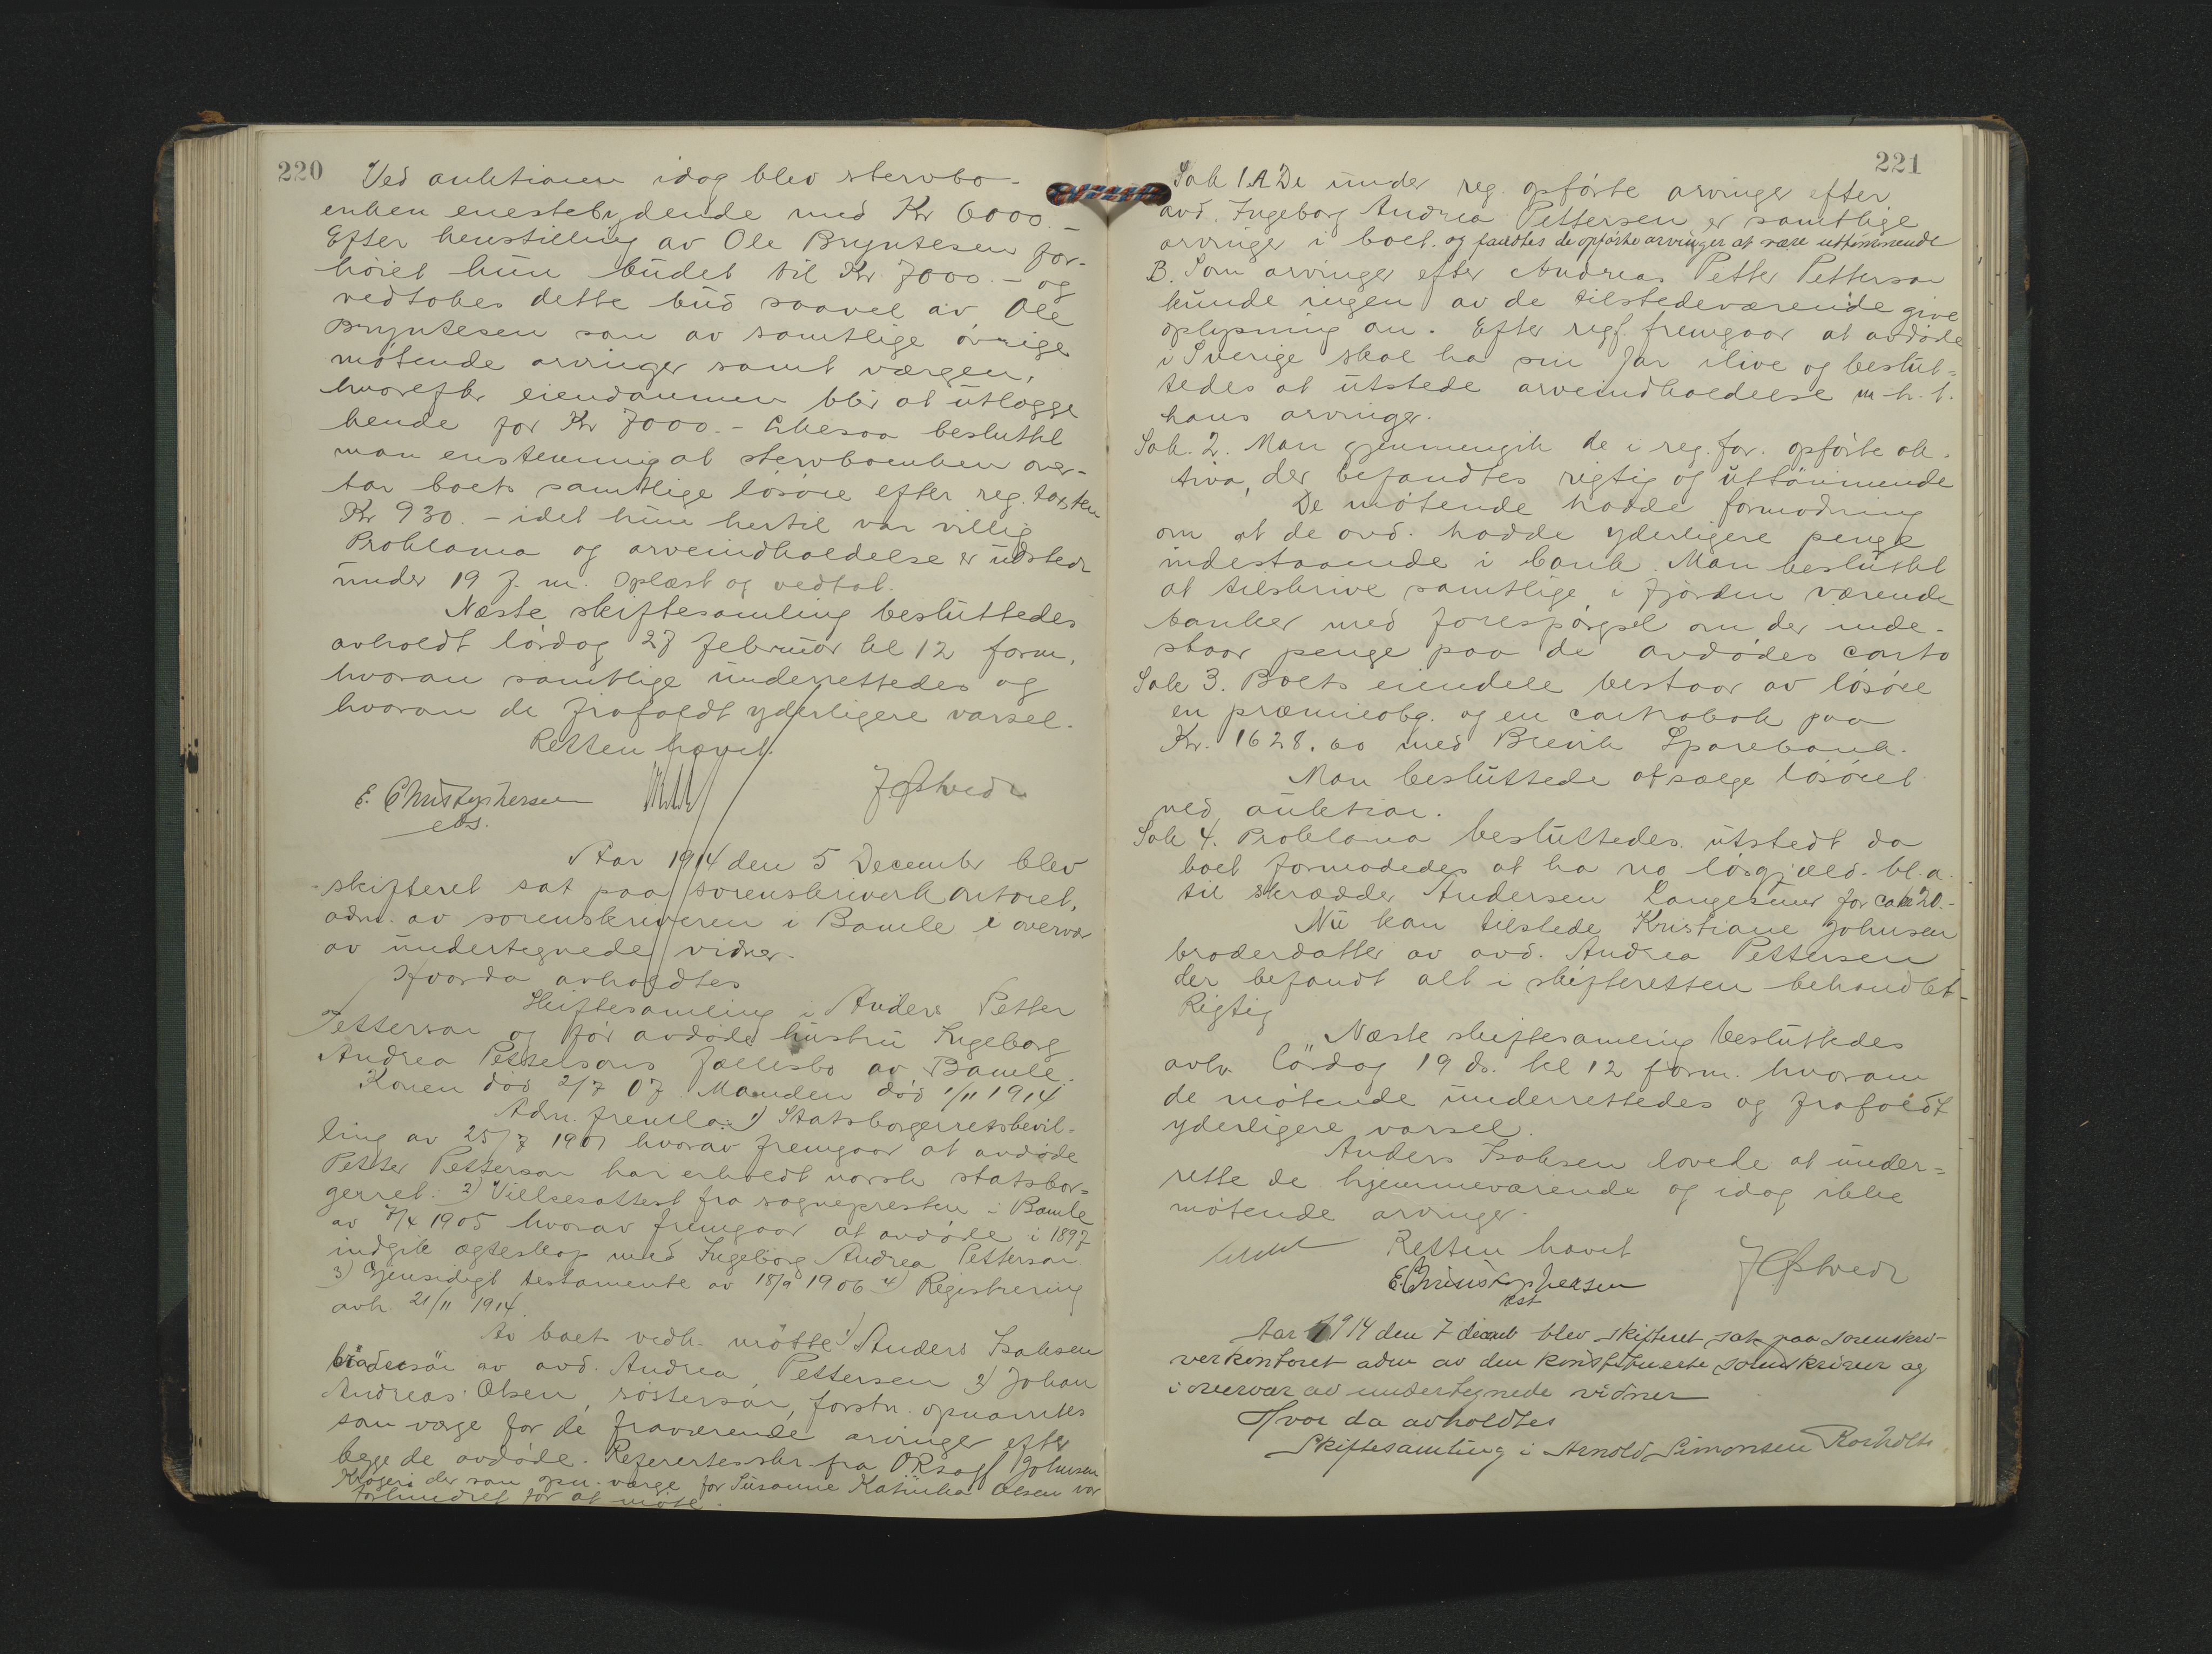 220
Ved auktionen idag blev stervbo-
enken enestebydende med Kr 6000.-
Efter henstilling av Ole Bryntesen for-
höiet hun budet til Kr. 7000.- og
vedtokes dette bud saavel av Ole
Bryntesen som av samtlige övrige
mötende arvinger samt værgen,
hvorefter eiendommen blir at utlægge
hende for Kr 7000.- Likesaa besluttet
man enstemmig at stervboenken over-
tar boets samtlige lösöre efter reg. taxten
Kr 930.- idet hun hertil var villig
Proklama og arveindkaldelse er udstedt
under 19 f. m. Oplæst og vedtat.
Næste skiftesamling besluttedes
avholdt lördag 27 februar kl 12 form.
hvorom samtlige underrettedes og
hvorom de frafaldt yderligere varsel.
Retten hævet.
E. Christophersen
cst.
Aar 1914 den 5 December blev
skifteret sat paa sorenskriverkontoret,
adm. av sorenskriveren i Bamle i overvær
av undertegnede vidner.
Hvorda avholdtes
Skiftesamling i Anders Petter
Petterson og för avdöde hustru Ingeborg
Andrea Pettersons fællesbo av Bamle.
Konen död 2/7 07 Manden död 1/11 1914
Adm. fremla: 1) Statsborgerretsbevil-
ling av 25/7 1901 hvorav fremgaar at avdöde
Petter Petterson har erholdt norsk statsbor-
gerret. 2) Vielsesattest fra sognepresten i Bamle
av 7/4 1905 hvorav fremgaar at avdöde i 1897
indgik ægteskap med Ingeborg Andrea Petterson
3) Gjensidigt testamente av 18/9 1906 4) Registrering
avh. 21/11 1914.
Av boet vedk. mötte 1) Anders Isaksen
brodersön av avd. Andrea Pettersen 2) Johan
Andreas Olsen, söstersön, forstn. opnævntes
som værge for de fraværende arvinger efter
begge de avdöde. Refereertes skr. fra Johnsen
Krogeri der som opn. værge for Susanne Katinka Olsen var
forhindret for at möte.
221
Sak 1. A De under reg. opförte arvinger efter
avd. Ingeborg Andrea Pettersen er samtlige
arvinger i boet. og fandtes de opförte arvinger at være uttömmende
B. Som arvinger efter Andreas Petter Petterson
kunde ingen av de tilstedeværende give
oplysning om. Efter regf. fremgaar at avdöde
i Sverige skal ha sin far ilive og beslut-
tedes at utstede arveindkaldelse m. h. t.
hans arvinger.
Sak. 2. Man gjennemgik de i reg. for. opförte ak-
tiva, der befandtes rigtig og uttömmende
De mötende hadde formodning
om at de avd. hadde yderligere penge
indestaaende i bank. Man besluttet
at tilskrive samtlige i fjorden værende
banker med forespörgsel om der inde-
staar penge paa de avdödes conto
Sak 3. Boets eiendele bestaar av lösöre
en præmieobg. og en contrabok paa
Kr. 1628.60 med Brevik Sparebank.
Man besluttede at sælge lösöret
ved auktion.
Sak 4. Proklama besluttedes utstedt da
boet formodedes at ha no lösgjæld. bl. a.
til skrædder Andersen Langesund for ca kr 20.-
Nu kom tilstede Kristiane Johnsen
broderdatter av avd. Andrea Pettersen
der befandt alt i skifteretten behandlet
Rigtig
Næste skiftesamling besluttedes
avh. lördag 19 ds. kl 12 form. hvorom
de mötende underrettedes og frafaldt
yderligere varsel.
Anders Isaksen lovede at under-
rette de hjemmeværende og idag ikke
mötende arvinger.
Retten hævet
E. Christophersen
cst
Aar 1914 den 7 decemb blev skifteret sat paa sorenskri-
verkontoret adm av den konstituerte sorenskriver og
i overvær av undertegnede vidner
Hvor da avholdtes
Skiftesamling i Arnold Simonsen Rosholts